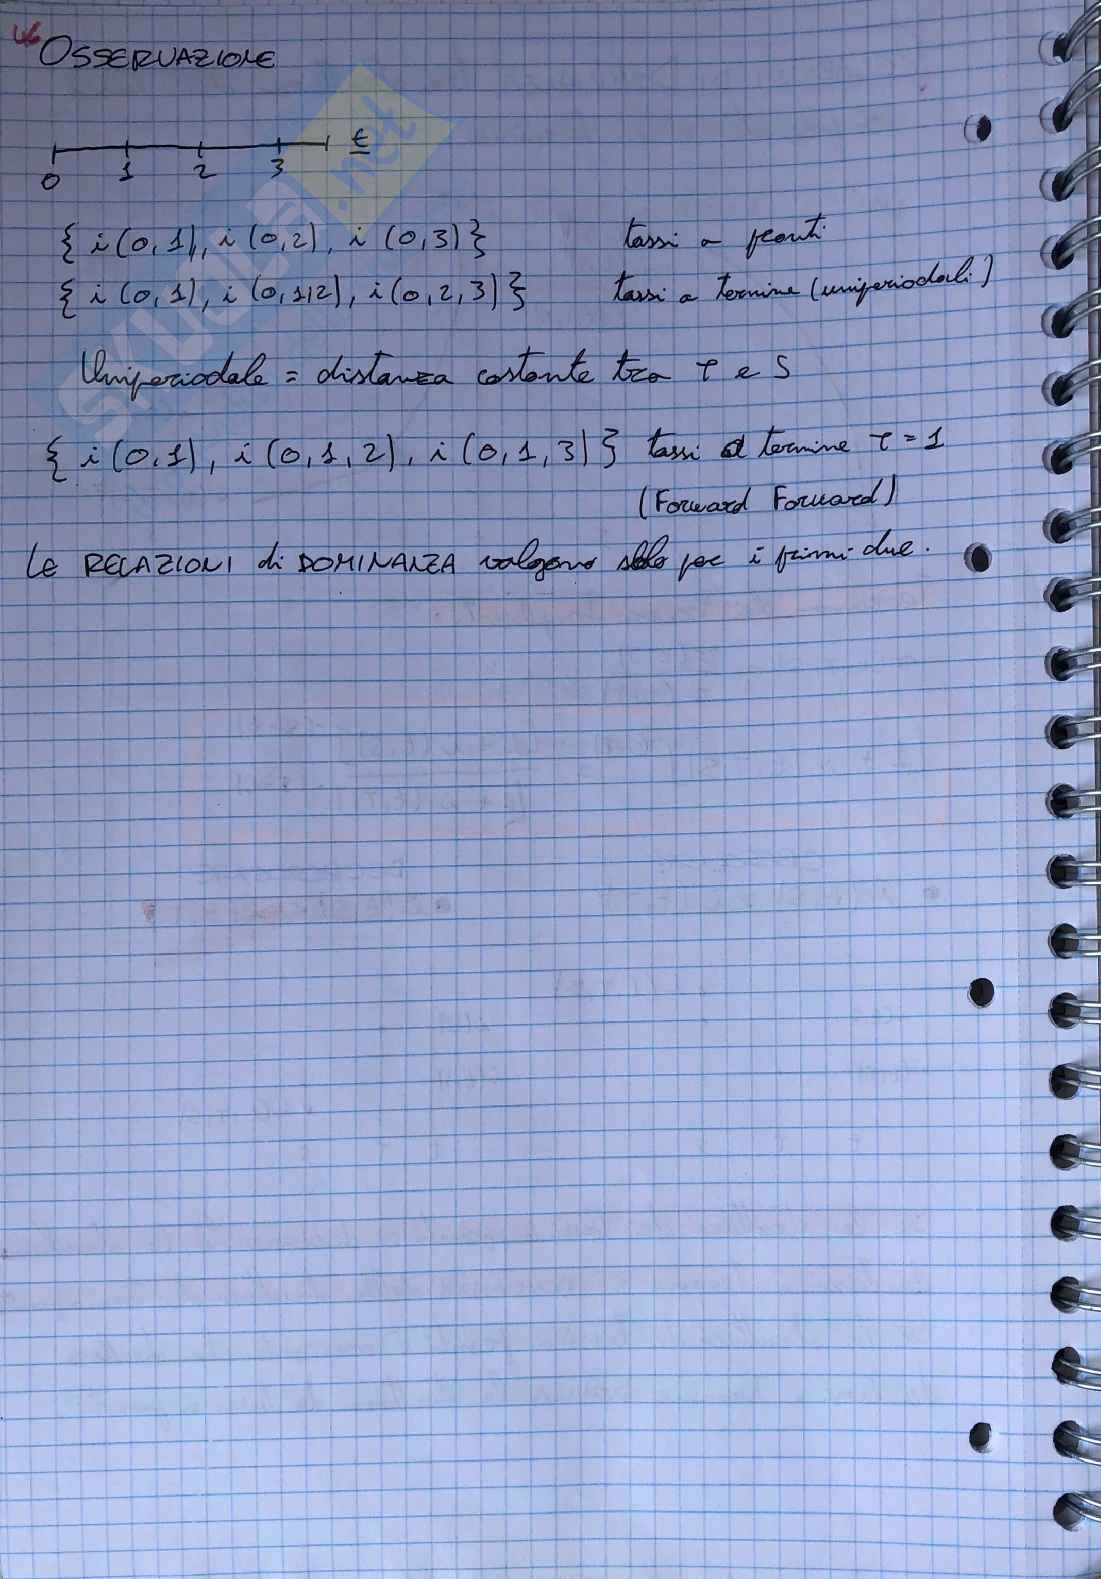 46
OSSERVAZIONE
€
0 1 2 3
{ i (0,1), i (0,2), i (0,3) } tassi a pronti
{ i (0,1), i (0,1,2), i (0,2,3) } tassi a termine (uniperiodali)
Uniperiodale = distanza costante tra τ e S
{ i (0,1), i (0,1,2), i (0,1,3) } tassi a termine τ = 1
(Forward Forward)
Le RELAZIONI di DOMINANZA valgono solo per i primi due.
SKUOLA.net